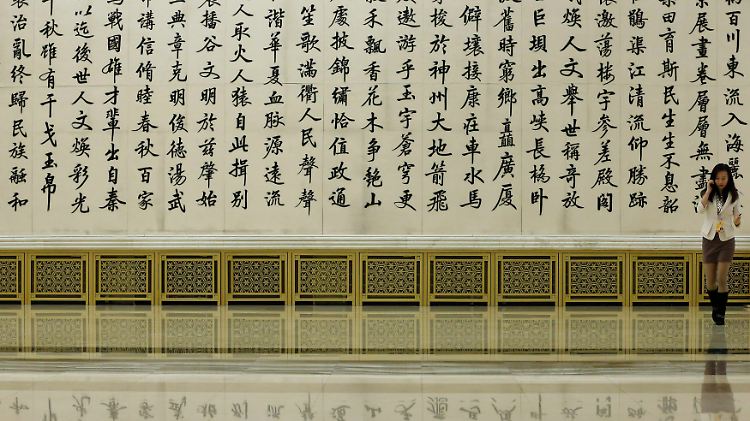 納百川東流入海麗
展畫卷層層無畫
桑田育斯民生生不息韶
渠江清流仰勝跡
懷邀蕩樓宇參差殿閣
焕人文舉世稱奇放
巨垻出高峽長橋卧
舊時窮鄉矗廣廈
僻壤接康莊車水馬
梭於神州大地箭飛
遨遊乎玉宇蒼穹更
禾飄香花木争艷山
慶披錦繡恰值政通
笙歌滿衢人民聲聲
諧華夏血脉源遠流
人取火人猿自此揖别
播谷文明於兹肇始
典章克明俊德湯武
講信脩睦春秋百家
戰國雄才輩出自秦
以迄後世人文焕彩光
秋雖有干戈玉帛
治亂終歸民族融和